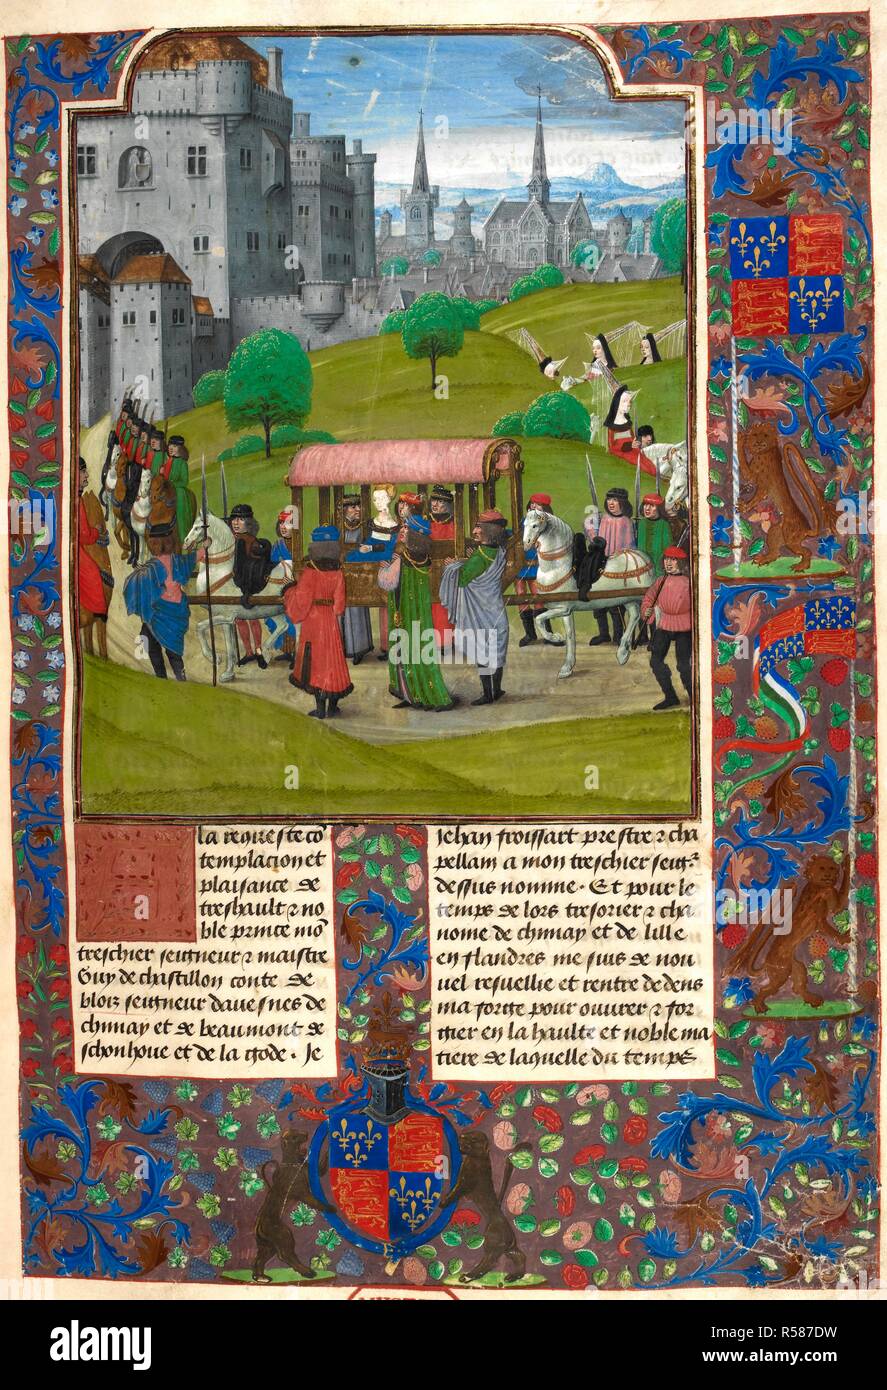 la requeste cõ
templacion et
plaisance de
treshault ⁊ no
ble prince mon
treschier seigneur ⁊ maistre
Guy de chastillon conte de
bloiz seigneur davesnes de
chimay et de beaumont de
schonhoue et de la gode. Je
Jehan froissart prestre ⁊ cha
pellain a mon treschier seigr
dessus nomme. Et pour le
temps de lors tresorier ⁊ cha
nome de chimay et de lille
en flandres me suis de nou
uel resueillie et rentre dedens
ma forge pour ouurer ⁊ for
gier en la haulte et noble ma
tiere de laquelle du temps
alamy
Image ID: R587DW
www.alamy.com